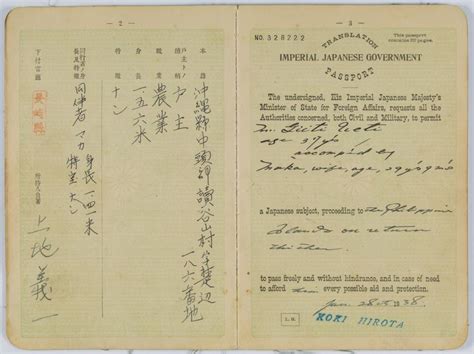 - 2 -
本籍
沖縄縣中頭郡讀谷山村字楚辺
一八六番地
戸主
職業
農業
身長
一五六米
特徴
ナシ
同伴者 マカ 身長一四一米
特徴ナシ
下付官廳
長崎縣
所持人自署
上地義一
- 3 -
NO. 328222
This passport
contains 32 pages.
TRANSLATION
IMPERIAL JAPANESE GOVERNMENT
PASSPORT
The undersigned, His Imperial Japanese Majesty's
Minister of State for Foreign Affairs, requests all the
Authorities concerned, both Civil and Military, to permit
Giiti Ueti
age 37y
accompanied by
Maka, wife, age, 29y9ms
a Japanese subject, proceeding to the Philippine
Islands on return
thither
to pass freely and without hindrance, and in case of need
to afford them every possible aid and protection.
Jan 28th 1938
L. S.
KOKI HIROTA